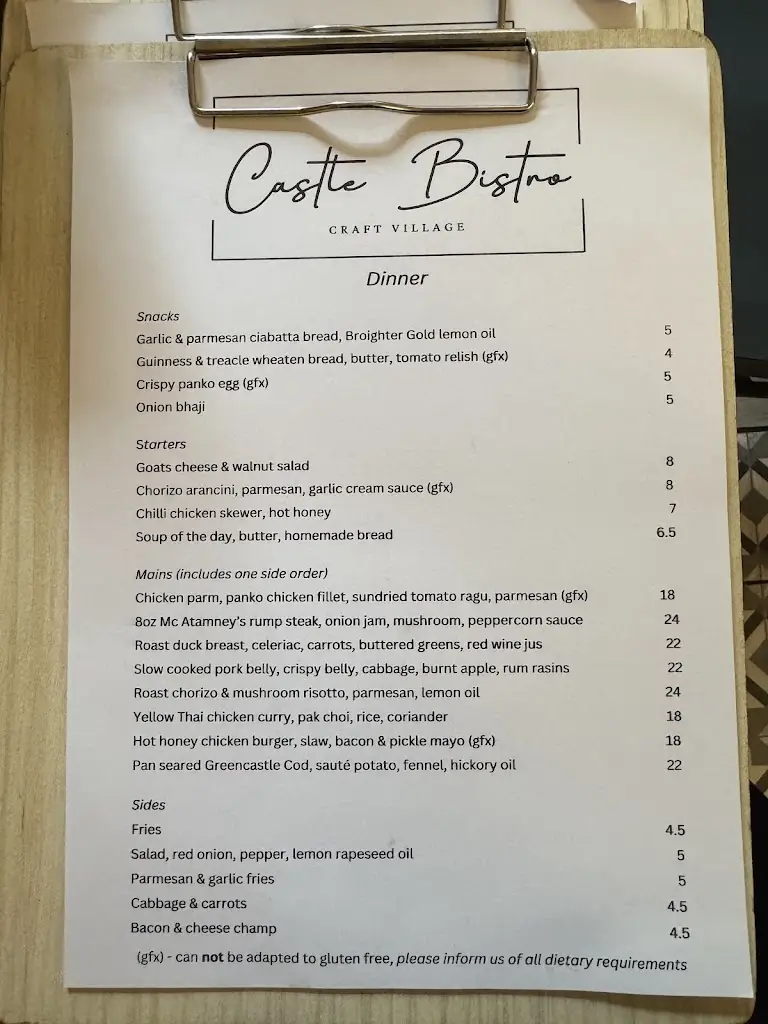 Castle Bistro
CRAFT VILLAGE
Dinner
Snacks
Garlic & parmesan ciabatta bread, Broighter Gold lemon oil 5
Guinness & treacle wheaten bread, butter, tomato relish (gfx) 4
Crispy panko egg (gfx) 5
Onion bhaji 5
Starters
Goats cheese & walnut salad 8
Chorizo arancini, parmesan, garlic cream sauce (gfx) 8
Chilli chicken skewer, hot honey 7
Soup of the day, butter, homemade bread 6.5
Mains (includes one side order)
Chicken parm, panko chicken fillet, sundried tomato ragu, parmesan (gfx) 18
8oz Mc Atamney's rump steak, onion jam, mushroom, peppercorn sauce 24
Roast duck breast, celeriac, carrots, buttered greens, red wine jus 22
Slow cooked pork belly, crispy belly, cabbage, burnt apple, rum rasins 22
Roast chorizo & mushroom risotto, parmesan, lemon oil 24
Yellow Thai chicken curry, pak choi, rice, coriander 18
Hot honey chicken burger, slaw, bacon & pickle mayo (gfx) 18
Pan seared Greencastle Cod, sauté potato, fennel, hickory oil 22
Sides
Fries 4.5
Salad, red onion, pepper, lemon rapeseed oil 5
Parmesan & garlic fries 5
Cabbage & carrots 4.5
Bacon & cheese champ 4.5
(gfx) - can not be adapted to gluten free, please inform us of all dietary requirements